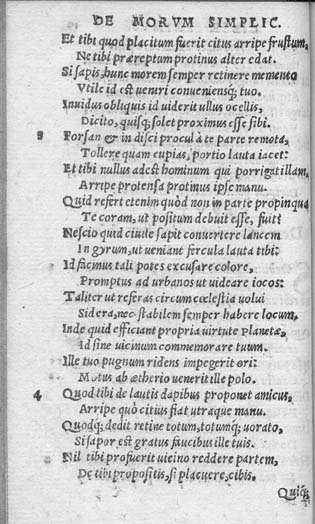 DE MORVM SIMPLIC.
Et tibi quod placitum fuerit citus arripe frustum,
Ne tibi præreptum protinus alter edat.
Si sapis, hunc morem semper retinere memento
Vtile id est ventri conueniensq; tuo.
Inuidus obliquis id viderit ullus ocellis,
Dicito, quisq; solet proximus esse sibi.
3 Forsan & in disci procul à te parte remota,
Tollere quam cupias, portio lauta iacet:
Et tibi nullus adest hominum qui porrigat illam,
Arripe protensa protinus ipse manu.
Quid refert etenim quòd non in parte propinqua
Te coram, ut positum debuit esse, fuit?
Nescio quid ciuile sapit conuertere lancem
In gyrum, ut ueniant fercula lauta tibi:
Id facinus tali potes excusare colore,
Promptus ad urbanos ut uideare iocos:
Taliter ut referas circum cœlestia uolui
Sidera, nec stabilem semper habere locum.
Inde quid efficiant propria uirtute Planetæ,
Id sine uicinum commemorare tuum.
Ille tuo pugnum ridens impegerit ori:
Motus ab ætherio uenerit ille polo.
4 Quod tibi de lautis dapibus proponet amicus,
Arripe quò citius fiat utraque manu.
Quodq; dedit retine totum, totumq; uorato,
Si sapor est gratus faucibus ille tuis.
Nil tibi profuerit uicino reddere partem,
De tibi propositis, si placuere, cibis.
Quiq;